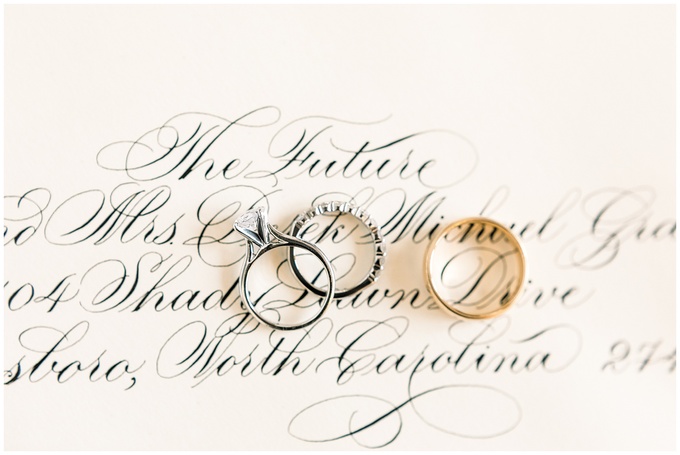 The Future
Mrs. Michael
04 Shady Lawn Drive
sboro, North Carolina 274